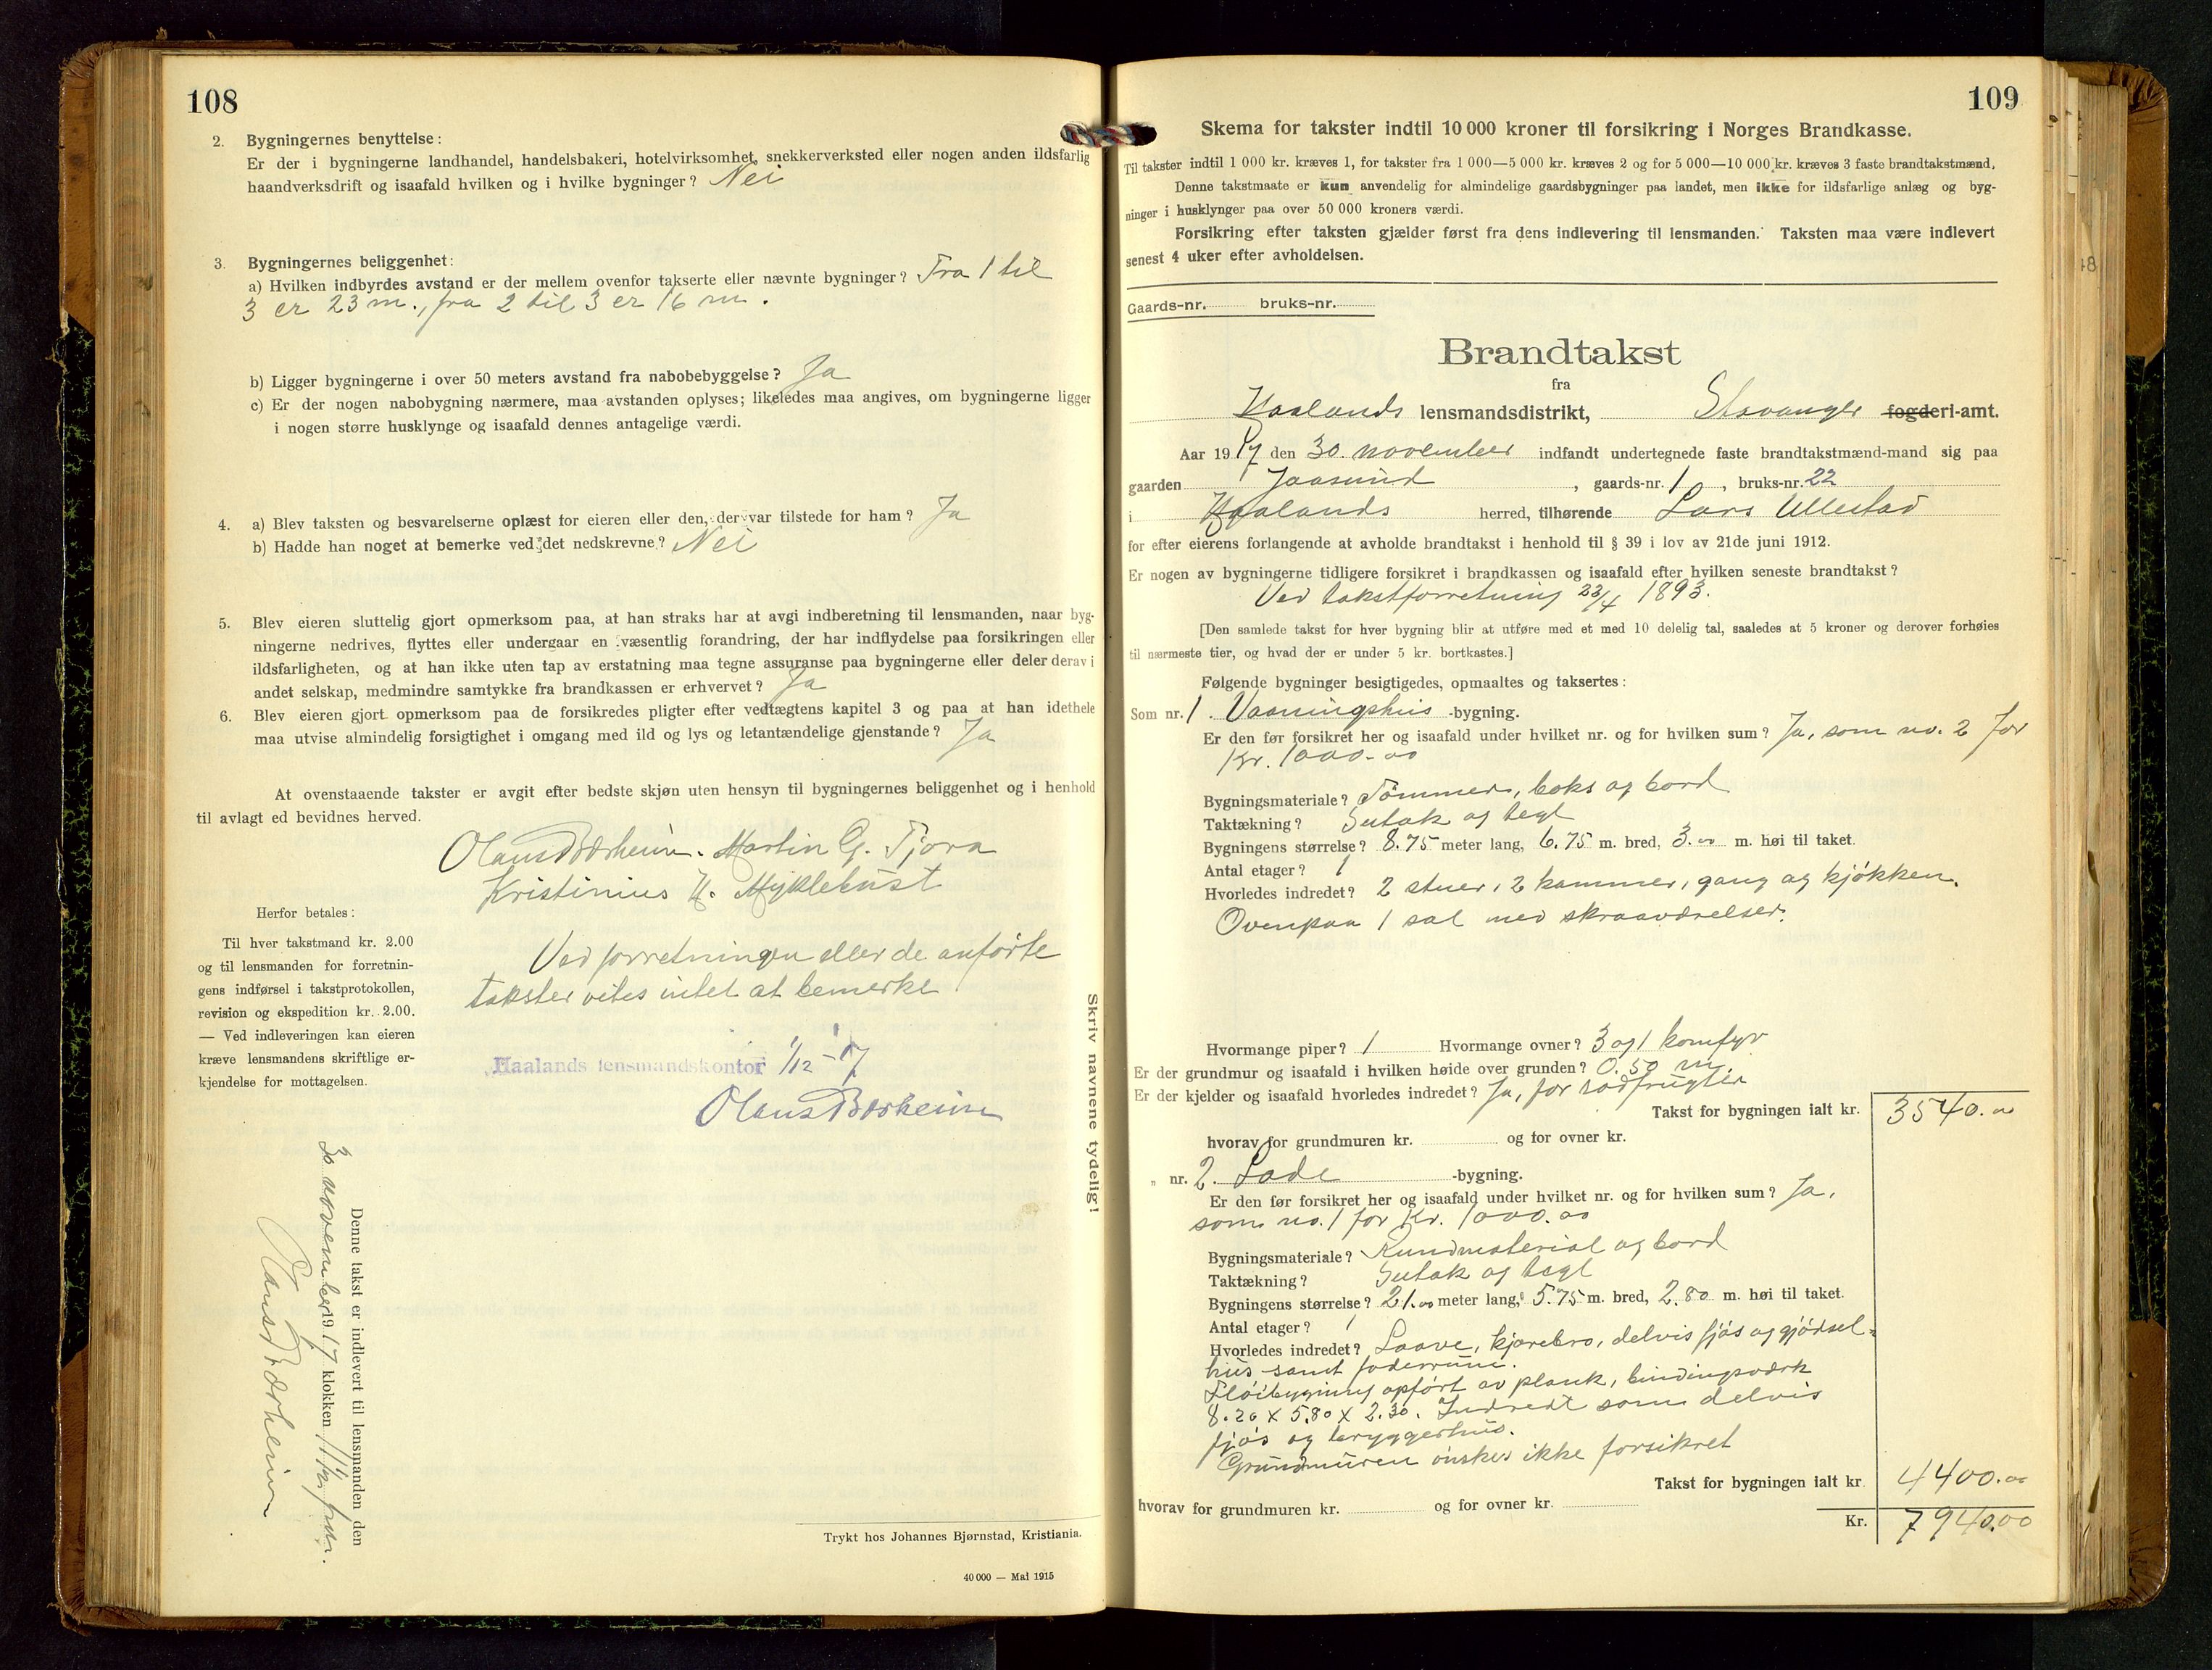 108
2. Bygningernes benyttelse:
Er der i bygningerne landhandel, handelsbakeri, hotelvirksomhet, snekkerverksted eller nogen anden ildsfarlig
haandverksdrift og isaafald hvilken og i hvilke bygninger? Nei
3. Bygningernes beliggenhet:
a) Hvilken indbyrdes avstand er der mellem ovenfor takserte eller nævnte bygninger? Fra 1 til
3 er 23 m., fra 2 til 3 er 16 m.
b) Ligger bygningerne i over 50 meters avstand fra nabobebyggelse? Ja
c) Er der nogen nabobygning nærmere, maa avstanden oplyses; likeledes maa angives, om bygningerne ligger
i nogen større husklynge og isaafald dennes antagelige værdi.
4. a) Blev taksten og besvarelserne oplæst for eieren eller den, der var tilstede for ham? Ja
b) Hadde han noget at bemerke ved det nedskrevne? Nei
5. Blev eieren sluttelig gjort opmerksom paa, at han straks har at avgi indberetning til lensmanden, naar byg-
ningerne nedrives, flyttes eller undergaar en væsentlig forandring, der har indflydelse paa forsikringen eller
ildsfarligheten, og at han ikke uten tap av erstatning maa tegne assuranse paa bygningerne eller deler derav i
andet selskap, medmindre samtykke fra brandkassen er erhvervet? Ja
6. Blev eieren gjort opmerksom paa de forsikredes pligter efter vedtægtens kapitel 3 og paa at han idethele
maa utvise almindelig forsigtighet i omgang med ild og lys og letantændelige gjenstande? Ja
At ovenstaaende takster er avgit efter bedste skjøn uten hensyn til bygningernes beliggenhet og i henhold
til avlagt ed bevidnes herved.
Olaus Bærheim. Martin G. Tjora
Kristinius H. Myklebust
Herfor betales:
Til hver takstmand kr. 2.00
og til lensmanden for forretnin-
gens indførsel i takstprotokollen,
revision og ekspedition kr. 2.00.
— Ved indleveringen kan eieren
kræve lensmandens skriftlige er-
kjendelse for mottagelsen.
Ved forretningen eller de anførte
takster vites intet at bemerke
Haalands lensmandskontor 1/12 - 17
Olaus Bærheim
Denne takst er indlevert til lensmanden den
30 november 1917 klokken 11 1/2 fm.
Olaus Bærheim
Skriv navnene tydelig!
Trykt hos Johannes Bjørnstad, Kristiania.
40 000 — Mai 1915
109
Skema for takster indtil 10 000 kroner til forsikring i Norges Brandkasse.
Til takster indtil 1 000 kr. kræves 1, for takster fra 1 000—5 000 kr. kræves 2 og for 5 000—10 000 kr. kræves 3 faste brandtakstmænd.
Denne takstmaate er kun anvendelig for almindelige gaardsbygninger paa landet, men ikke for ildsfarlige anlæg og byg-
ninger i husklynger paa over 50 000 kroners værdi.
Forsikring efter taksten gjælder først fra dens indlevering til lensmanden. Taksten maa være indlevert
senest 4 uker efter avholdelsen.
Gaards-nr. bruks-nr.
Brandtakst
fra
Haalands lensmandsdistrikt, Stavanger fogderi-amt.
Aar 1917 den 30. november indfandt undertegnede faste brandtakstmænd-mand sig paa
gaarden Jaasund, gaards-nr. 1, bruks-nr. 22
i Haalands herred, tilhørende Lars Ullestad
for efter eierens forlangende at avholde brandtakst i henhold til § 39 i lov av 21de juni 1912.
Er nogen av bygningerne tidligere forsikret i brandkassen og isaafald efter hvilken seneste brandtakst?
Ved takstforretning 23/4 1893.
[Den samlede takst for hver bygning blir at utføre med et med 10 delelig tal, saaledes at 5 kroner og derover forhøies
til nærmeste tier, og hvad der er under 5 kr. bortkastes.]
Følgende bygninger besigtigedes, opmaaltes og taksertes:
Som nr. 1. Vaaningshus -bygning.
Er den før forsikret her og isaafald under hvilket nr. og for hvilken sum? Ja, som no. 2 for
Kr. 1000.00
Bygningsmateriale? Tømmer, boks og bord
Taktækning? Sutak og tegl
Bygningens størrelse? 8.75 meter lang, 6.75 m. bred, 3.00 m. høi til taket.
Antal etager? 1
Hvorledes indredet? 2 stuer, 2 kammer, gang og kjøkken.
Ovenpaa 1 sal med skraaværelser.
Hvormange piper? 1 Hvormange ovner? 3 og 1 komfyr
Er der grundmur og isaafald i hvilken høide over grunden? 0.50 m.
Er der kjelder og isaafald hvorledes indredet? Ja, for rodfrugter
Takst for bygningen ialt kr. 3540.00
hvorav for grundmuren kr. og for ovner kr.
„ nr. 2. Lade -bygning.
Er den før forsikret her og isaafald under hvilket nr. og for hvilken sum? Ja,
som no. 1 for Kr. 1000.00
Bygningsmateriale? Rundmaterial og bord
Taktækning? Sutak og tegl
Bygningens størrelse? 21.00 meter lang, 5.75 m. bred, 2.80 m. høi til taket.
Antal etager? 1
Hvorledes indredet? Laave, kjørebro, delvis fjøs og gjødsel-
hus samt foderrum.
Fløibygning opført av plank, bindingsværk
8.20 x 5.80 x 2.30. Indredt som delvis
fjøs og bryggerhus.
Grundmuren ønskes ikke forsikret
Takst for bygningen ialt kr. 4400.00
hvorav for grundmuren kr. og for ovner kr.
Kr. 7940.00